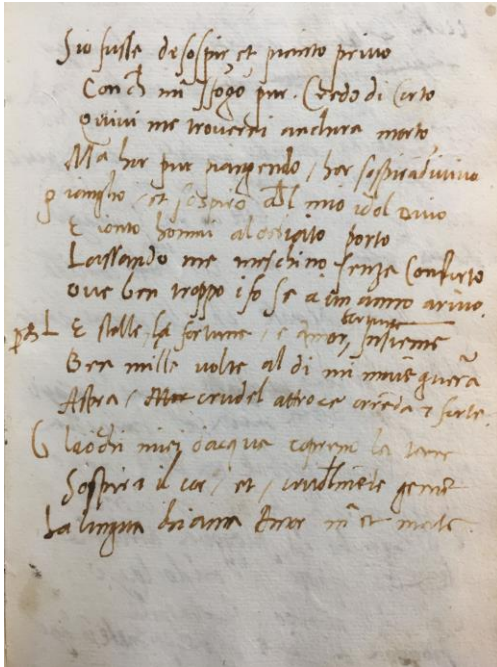 Sio fusse de sospir et pianto privo
Con ch mi sfogo pur. Credo di certo
Quivi me troverei anchora morto
Ma hor pur piangendo / hor sospirando vivo
piangho / et sospiro al mio idol divo
E ionto homai al desiato porto
Lassando me meschino senza Conforto
Que ben troppo
L E stelle, la fortuna / e Amor, insieme
Ben mille volte al di mi move guerra
Aspra / crudel attroce orrenda e forte.
G li ochi miei dacqua copreno la terra
Sospira il cor / et / crudelmente geme
La lingua chiama Amor et morte.